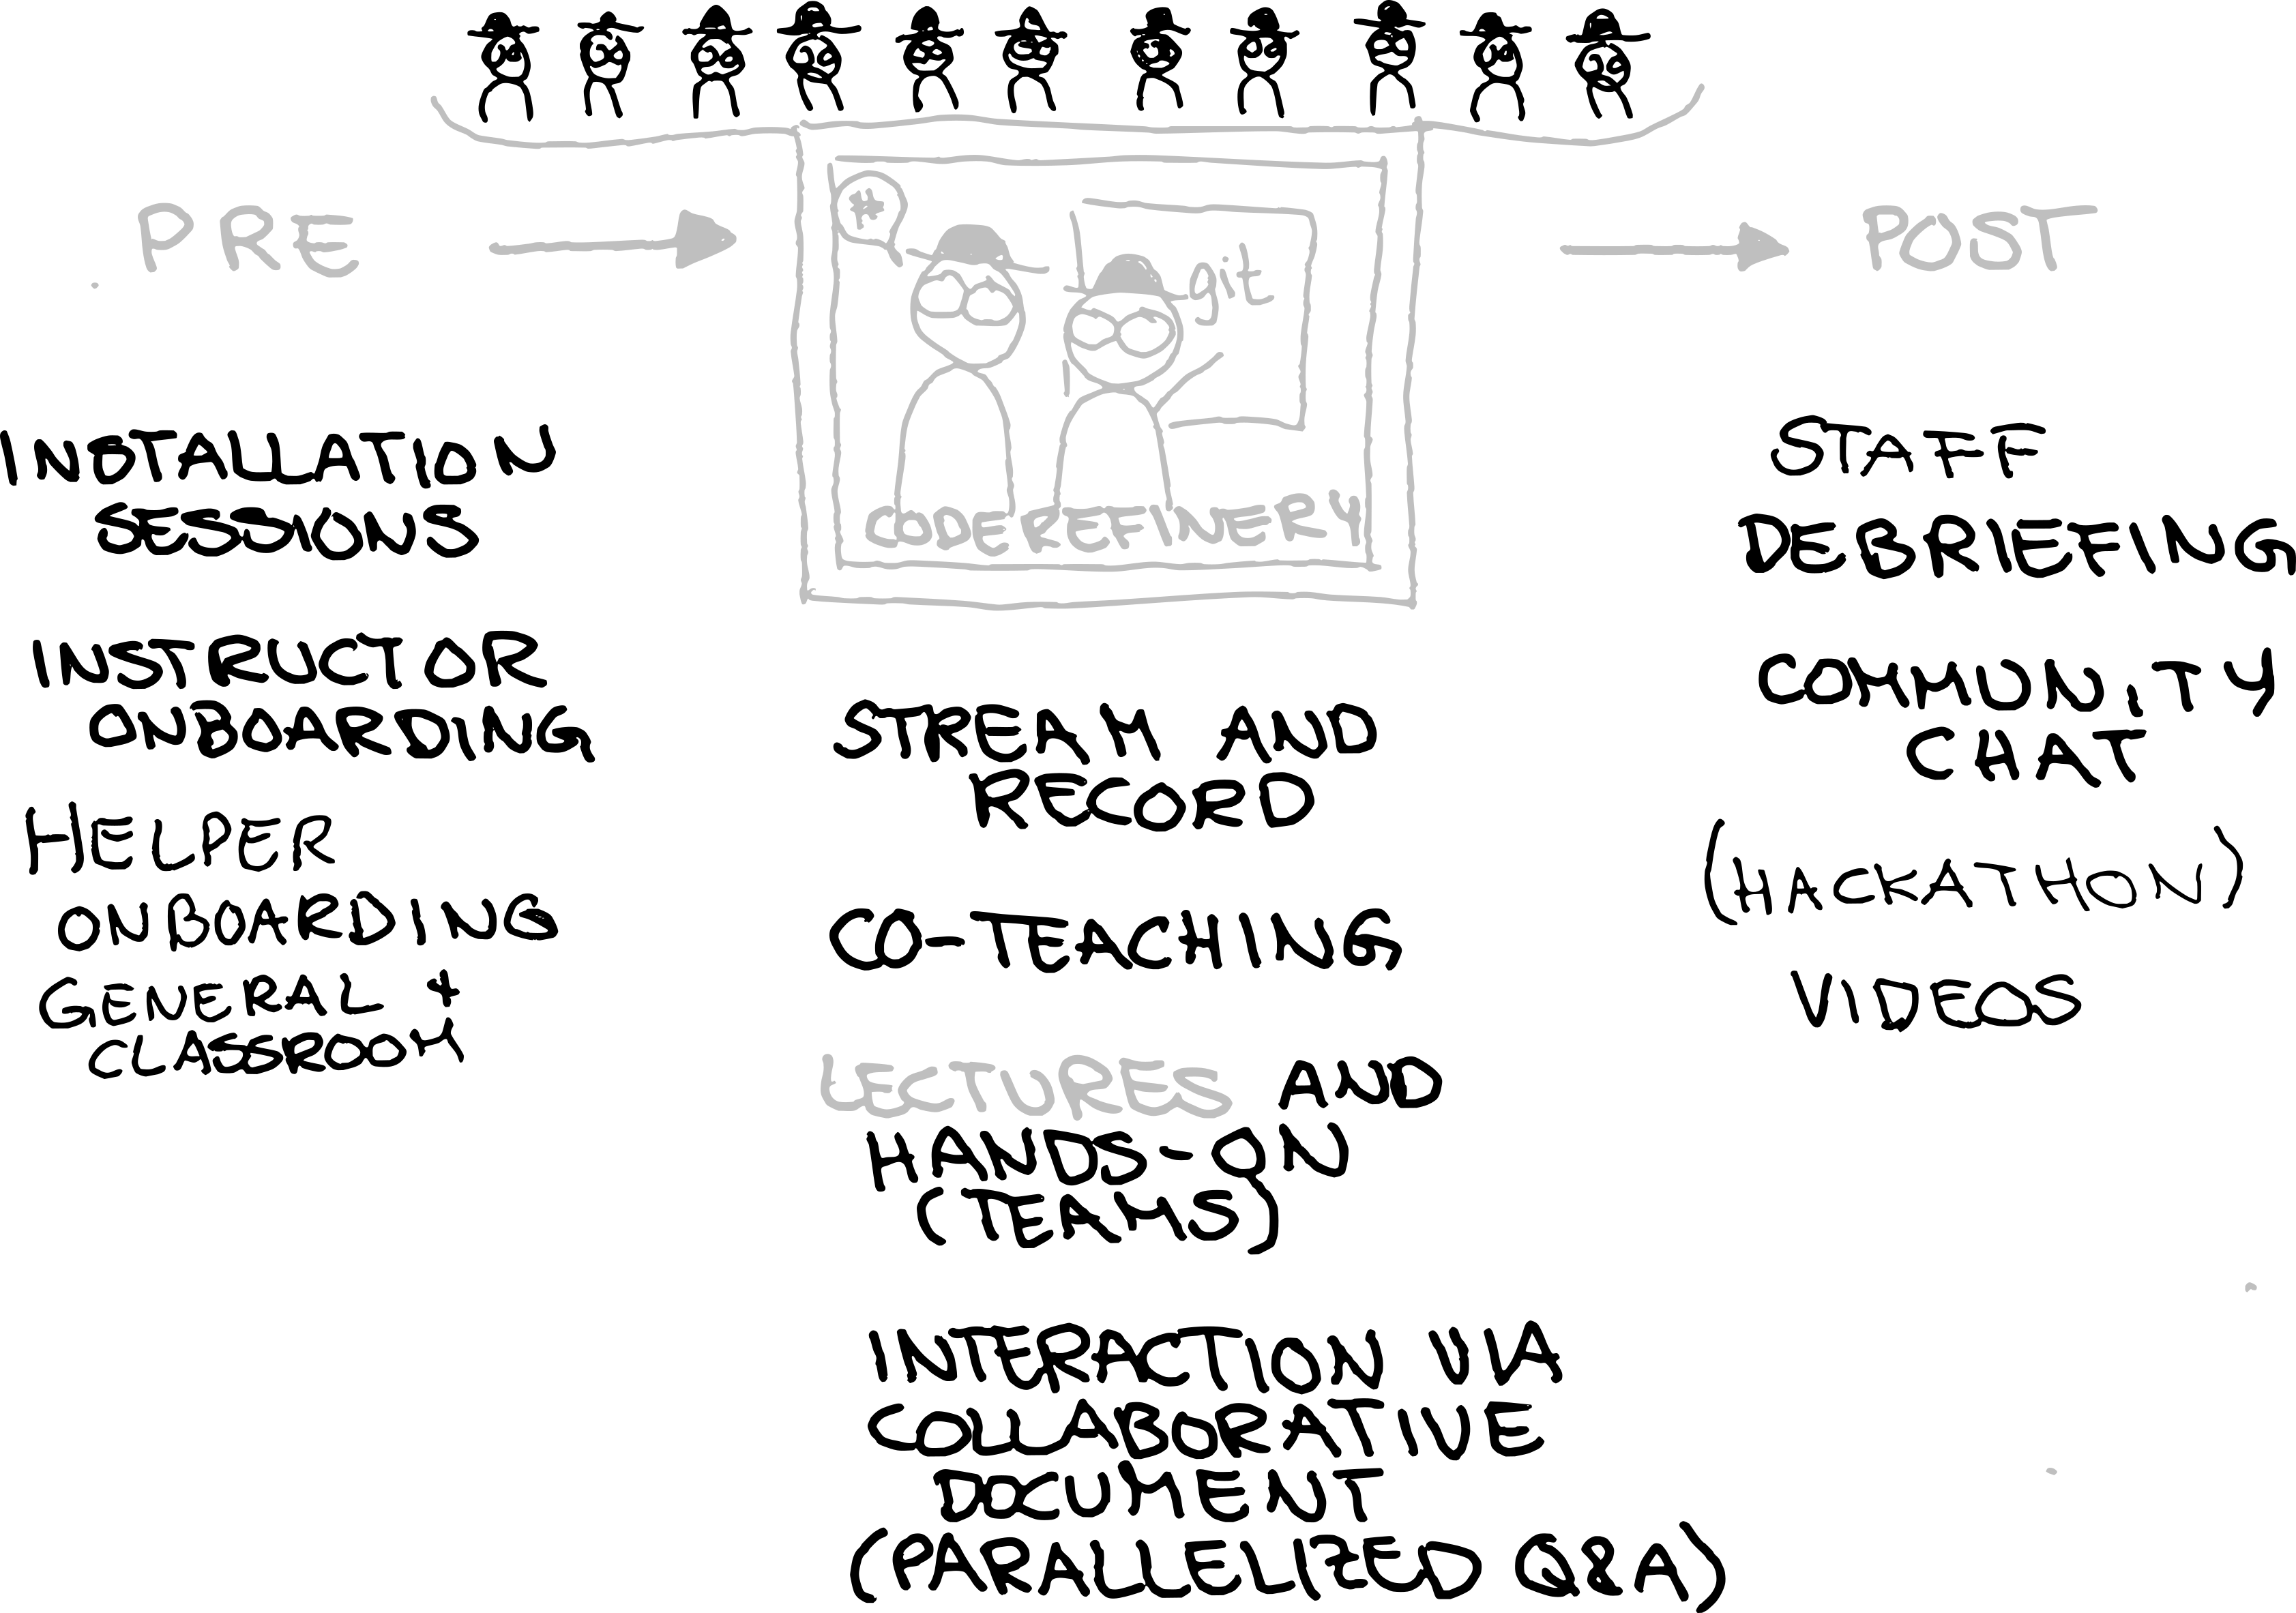 PRE
POST
#
git
CODEREFINERY
INSTALLATION
SESSIONS
INSTRUCTOR
ONBOARDING
HELPER
ONBOARDING
GENERAL +
CLASSROOM
STREAM AND
RECORD
CO-TEACHING
LECTURES AND
HANDS-ON
(TEAMS)
INTERACTION VIA
COLLABORATIVE
DOCUMENT
(PARALLELIZED Q&A)
STAFF
DEBRIEFING
COMMUNITY
CHAT
(HACKATHON)
VIDEOS